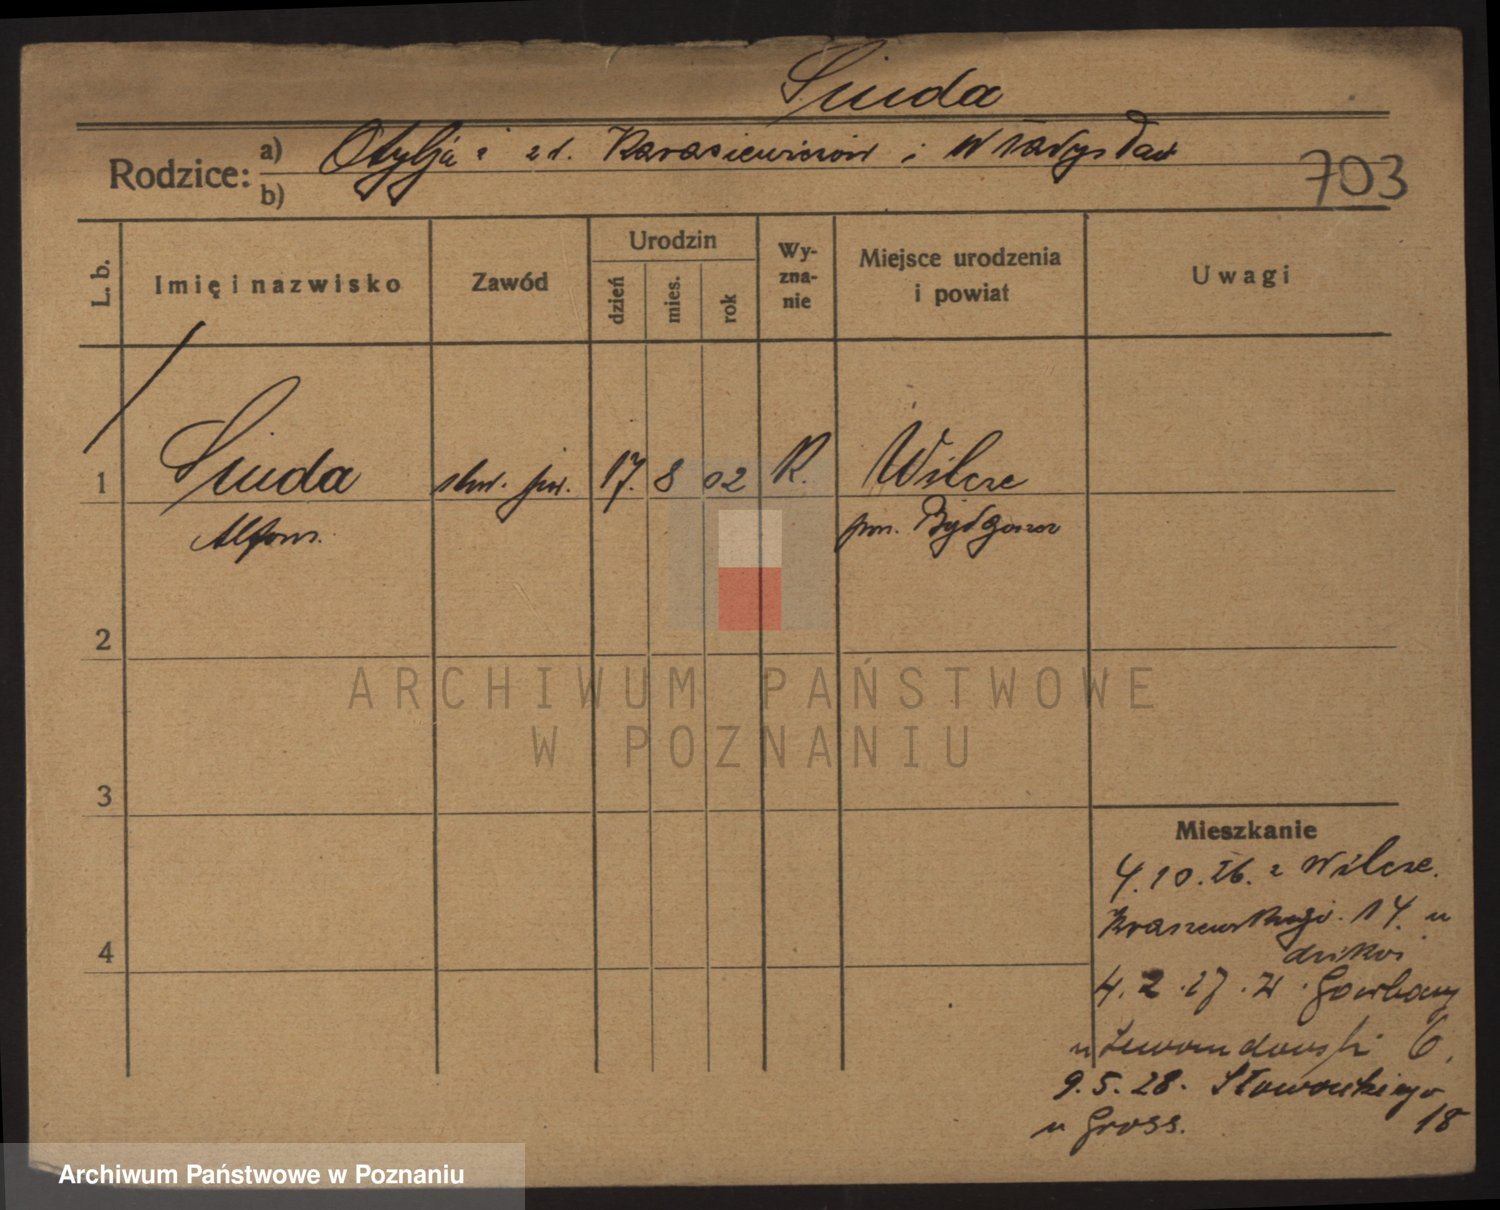 Siuda
Rodzice: a) Otylja z d. Karasiewiczów i Władysław
b)
703
L. b.
Imię i nazwisko
Zawód
Urodzin
dzień
mies.
rok
Wy-
zna-
nie
Miejsce urodzenia
i powiat
Uwagi
1
Siuda
17. 8 02
R.
Wilcze
Alfons.
pow. Bydgoszcz
2
3
4
Mieszkanie
4.10.26. z Wilcze.
Kraszewskiego. 14. u
4.2.27.
u Lewandowski 6.
9.5.28. Słowackiego
u Gross. 18
ARCHIWUM PAŃSTWOWE
W POZNANIU
Archiwum Państwowe w Poznaniu